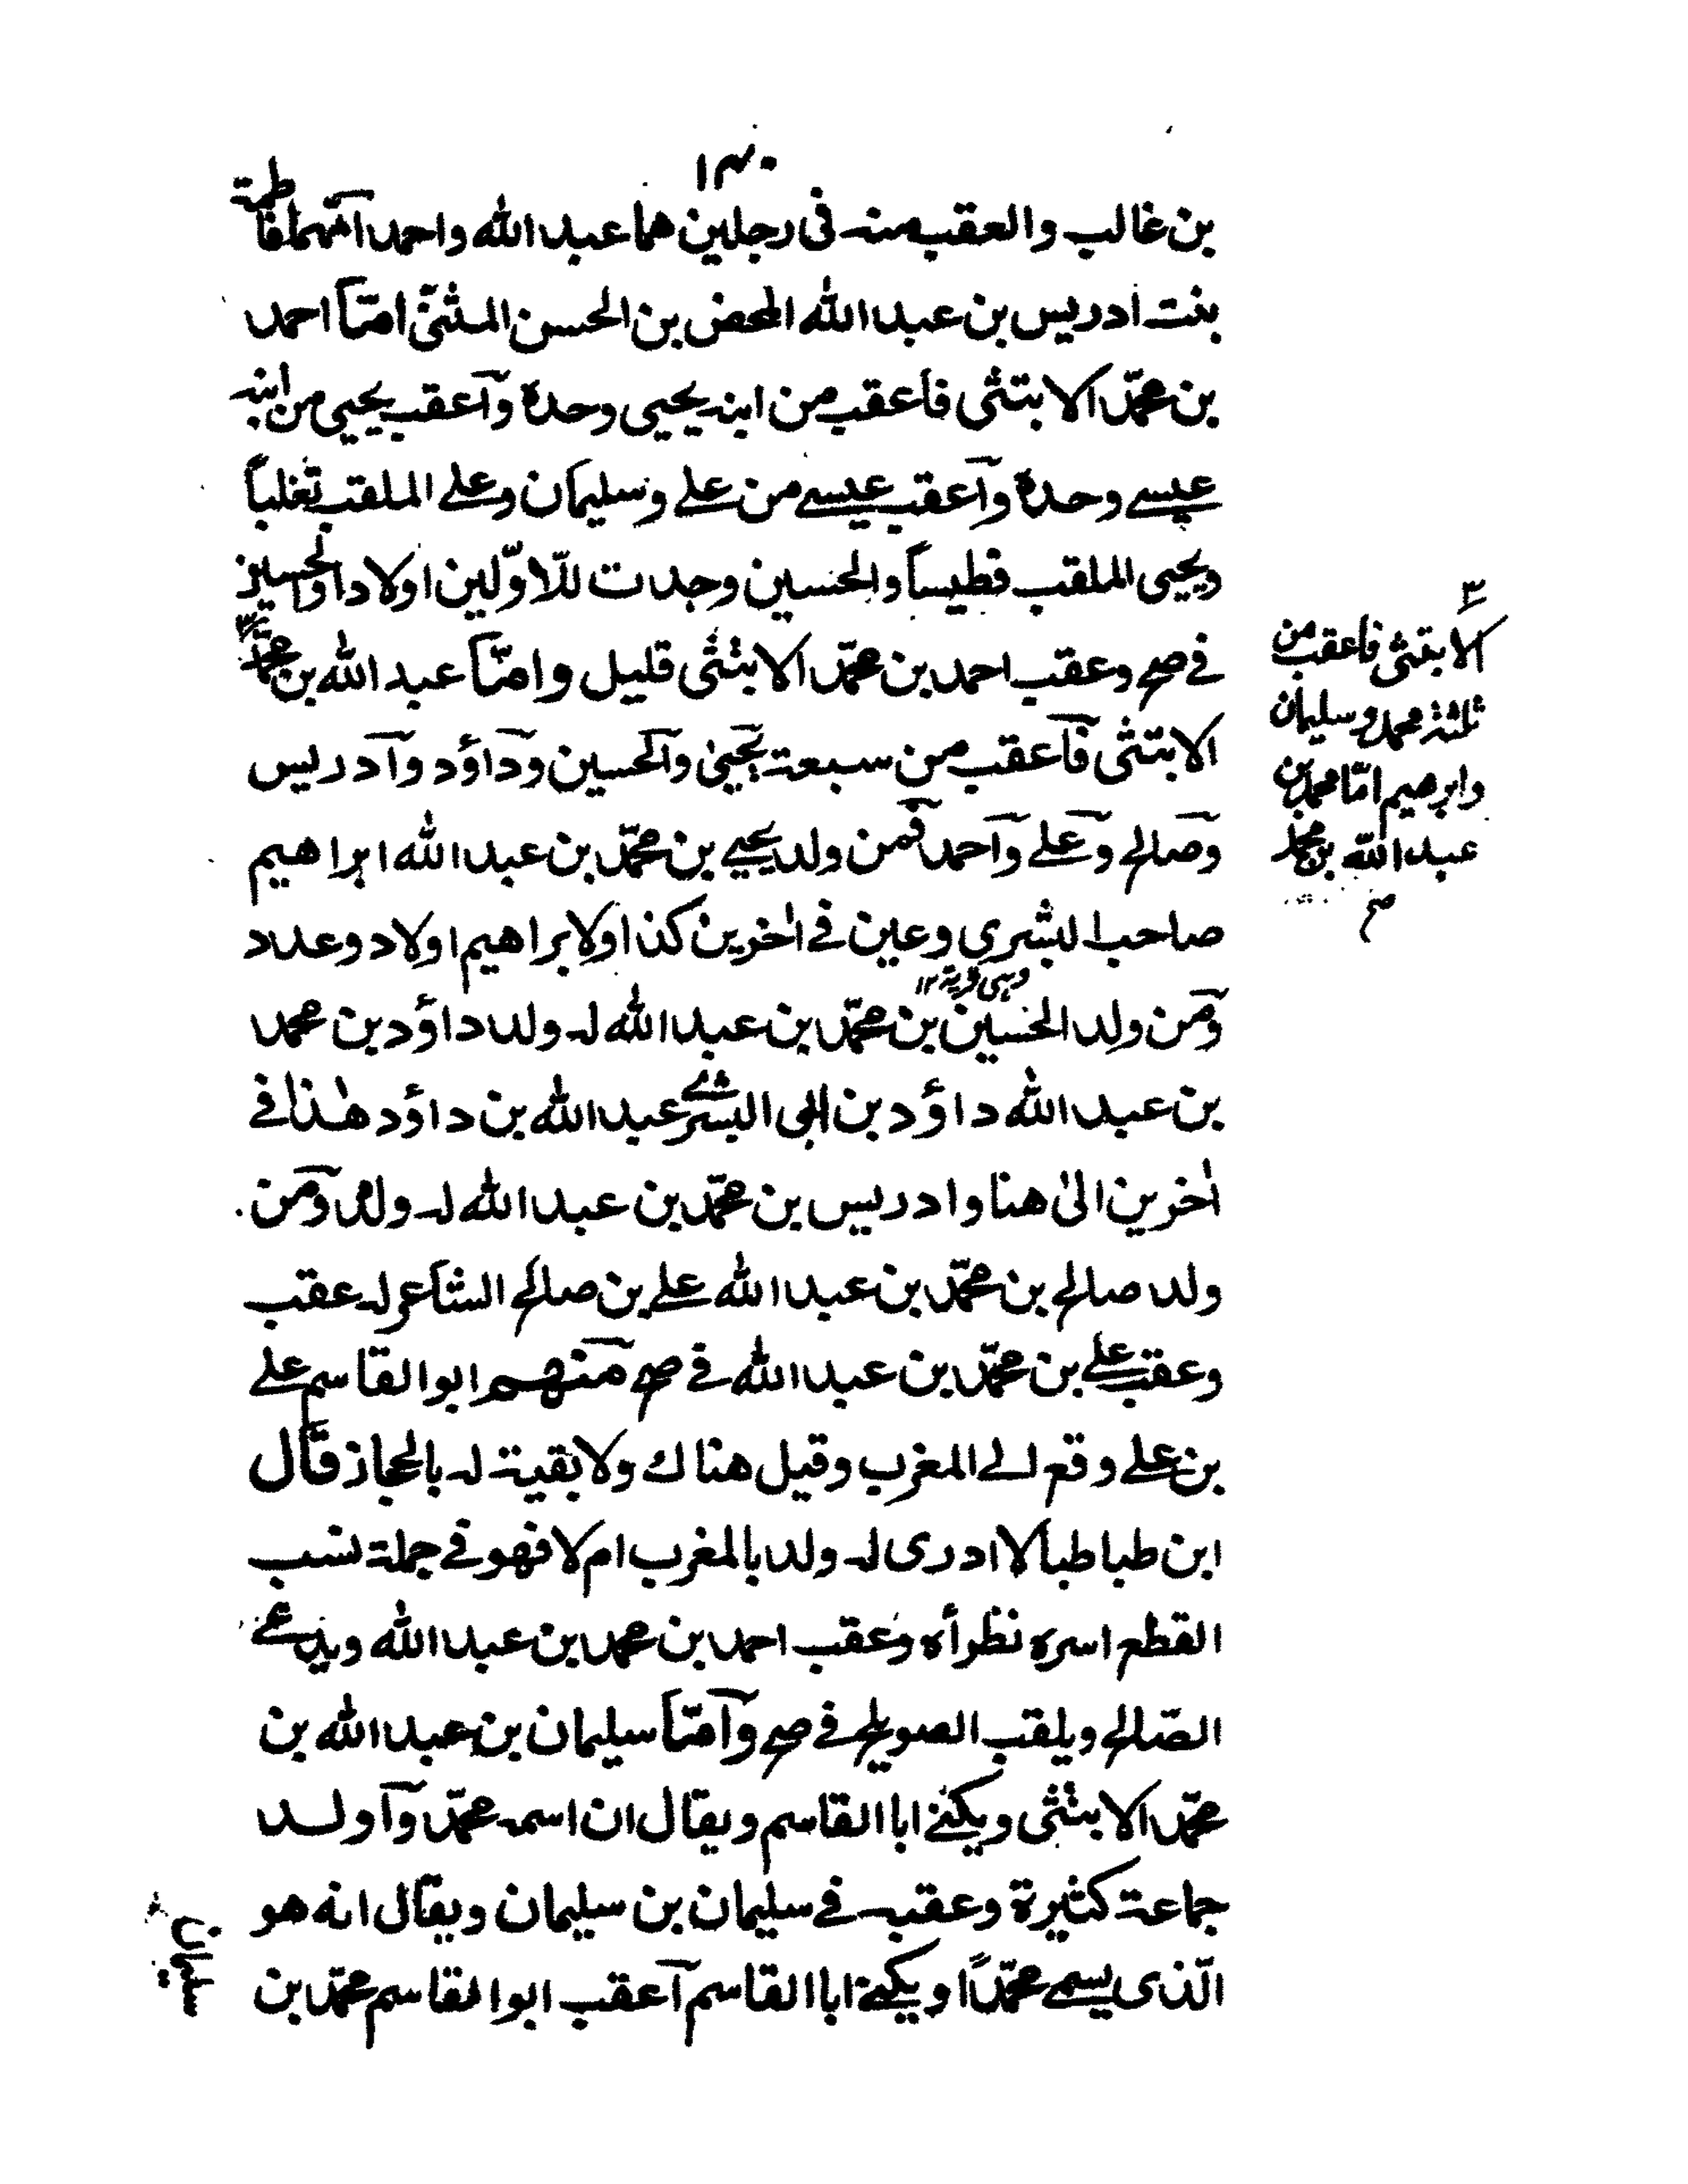 ١٣٠
بن غالب والعقب منه فى رجلين هما عبد الله واحمد امّهما فاطمة
بنت ادريس بن عبد الله المحض بن الحسن المثنّى امّا احمد
بن محمّد الابتثى فاعقب من ابنه يحيى وحدة وآعقب يحيى من ابنه
عيسے وحدة وآعقب عيسے من علے وسليمان وعلے الملقب تغلباً
ويحيى الملقب قطيساً والحسين وجدت للاوّلين اولادا والحسين
فے صح وعقب احمد بن محمّد الابتثى قليل وامّا عبد الله بن محمّد ٣
الابتثى فآعقب من سبعة يحيىٰ وآلحسين وداؤد وآدريس
وصالح وعلے وآحمد فمن ولد يحيے بن محمّد بن عبد الله ابراهيم
صاحب البشرى وعين فے اخرين كذا ولابراهيم اولاد وعدد
وهى قرية ١٢
ومن ولد الحسين بن محمّد بن عبد الله له ولد داؤد بن محمد
بن عبد الله داؤد بن ابى البشرے عبد الله بن داؤد هٰذا فے
اٰخرين الىٰ هنا وادريس بن محمّد بن عبد الله له ولد ومن
ولد صالح بن محمّد بن عبد الله علے بن صالح الشاعر له عقب
وعقب علے بن محمّد بن عبد الله فے صح منهم ابو القاسم علے
بن علے وقع الے المغرب وقيل هناك ولا بقية له بالحجاز قال
ابن طباطبا لا ادرى له ولد بالمغرب ام لا فهو فے جملة نسب
القطع اسره نظرأه وعقب احمد بن محمد بن عبد الله ويدعے
الصّالح ويلقب الصويلح فے صح وآمّا سليمان بن عبد الله بن
محمّد الابتثى ويكنے ابا القاسم ويقال ان اسمه محمّد وآولد
جماعة كثيرة وعقبه فے سليمان بن سليمان ويقال انه هو
الّذى يسمے محمّداً ويكنے ابا القاسم آعقب ابو القاسم محمّد بن
سليمان
٣
الابتثى فاعقب من
ثلثة محمد وسليمان
وابرهيم امّا محمد بن
عبد الله بن محمد
صح